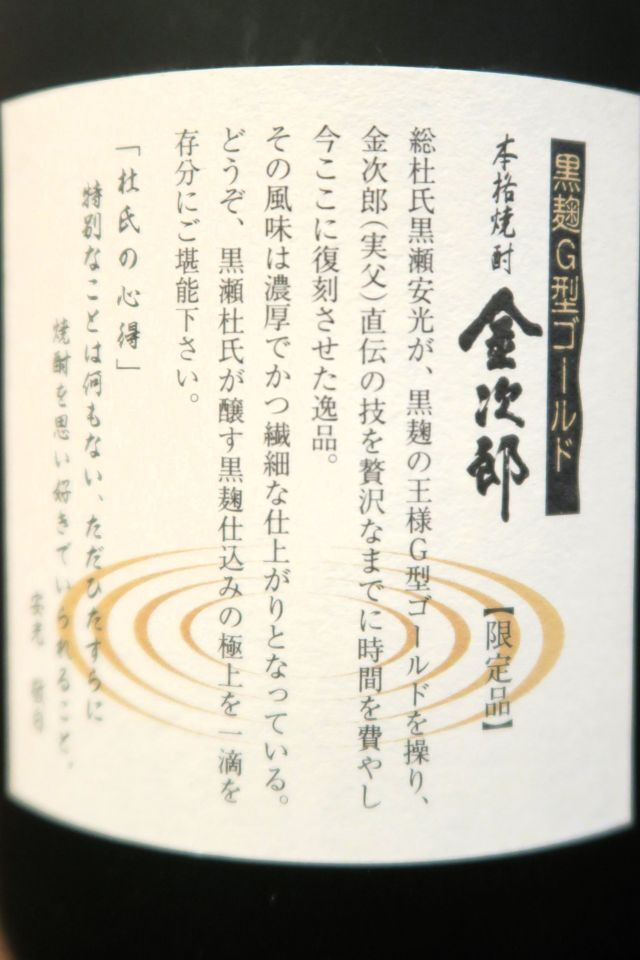 黒麹G型ゴールド
本格焼酎 金次郎 【限定品】
総杜氏黒瀬安光が、黒麹の王様G型ゴールドを操り、
金次郎(実父)直伝の技を贅沢なまでに時間を費やし
今ここに復刻させた逸品。
その風味は濃厚でかつ繊細な仕上がりとなっている。
どうぞ、黒瀬杜氏が醸す黒麹仕込みの極上を一滴を
存分にご堪能下さい。
「杜氏の心得」
特別なことは何もない、ただひたすらに
焼酎を思い好きでいられること。
安光